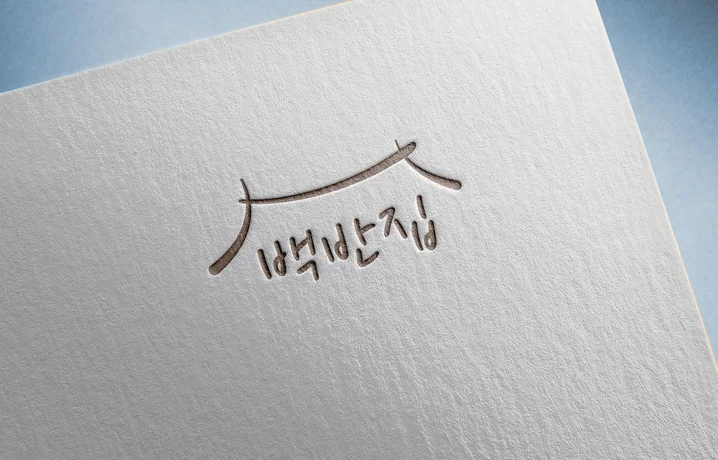 백반집